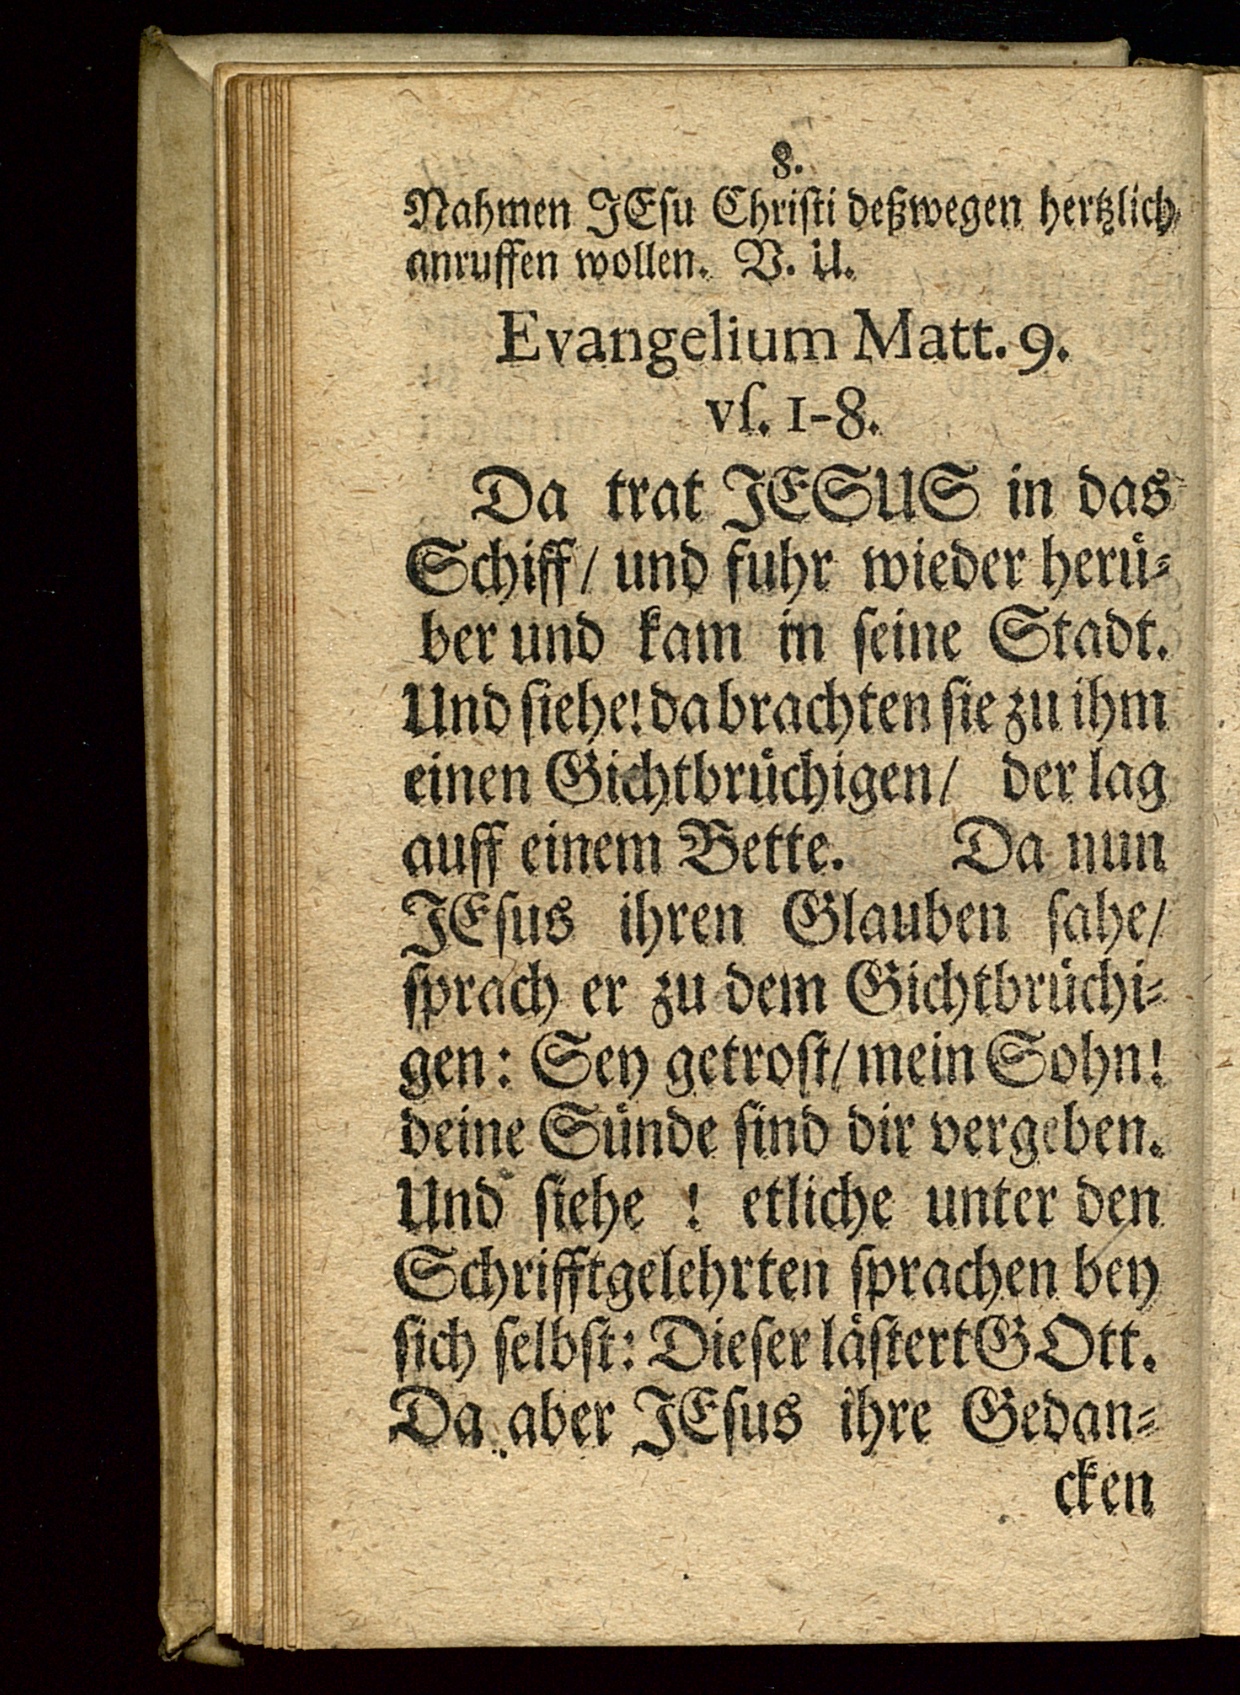 8.
Nahmen JEſu Chriſti deßwegen hertzlich
anruffen wollen. V. U.
Evangelium Matt. 9.
vſ. 1-8.
Da trat JESUS in das
Schiff/ und fuhr wieder heruͤ⸗
ber und kam in ſeine Stadt.
Und ſiehe! da brachten ſie zu ihm
einen Gichtbruͤchigen/ der lag
auff einem Bette. Da nun
JEſus ihren Glauben ſahe/
ſprach er zu dem Gichtbruͤchi⸗
gen: Sey getroſt/ mein Sohn!
deine Suͤnde ſind dir vergeben.
Und ſiehe ! etliche unter den
Schrifftgelehrten ſprachen bey
ſich ſelbſt: Dieſer laͤſtert GOtt.
Da aber JEſus ihre Gedan⸗
cken